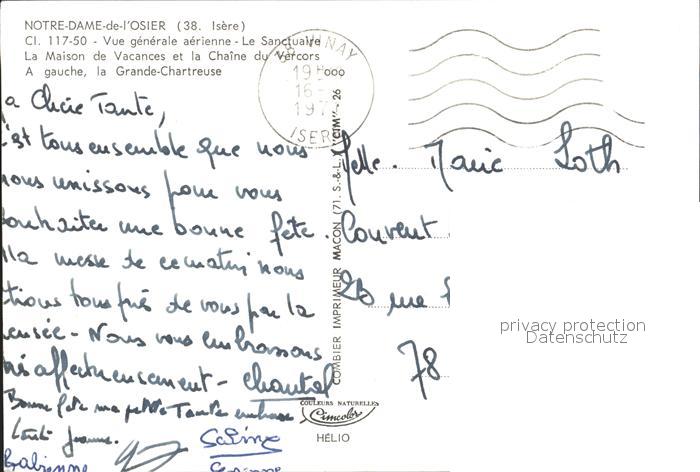 NOTRE-DAME-de-l'OSIER (38. Isère)
Cl. 117-50 - Vue générale aérienne - Le Sanctuaire
La Maison de Vacances et la Chaîne du Vercors
A gauche, la Grande-Chartreuse
38 VINAY
16
197
ISERE
a Chère Tante,
'est tous ensemble que nous
nous unissons pour vous
souhaiter une bonne fête.
A la messe de ce matin nous
étions tous près de vous par la
pensée - Nous vous embrassons
très affectueusement - Chantal
Bonne fête ma petite Tante
Jeanne.
Sabine
Fabienne
COMBIER IMPRIMEUR MACON (71. S.-&-L.) "CIM" - 26
Melle. Marie Loth
Couvent
26 rue
78
privacy protection
Datenschutz
COULEURS NATURELLES
Cimcolor
HÉLIO